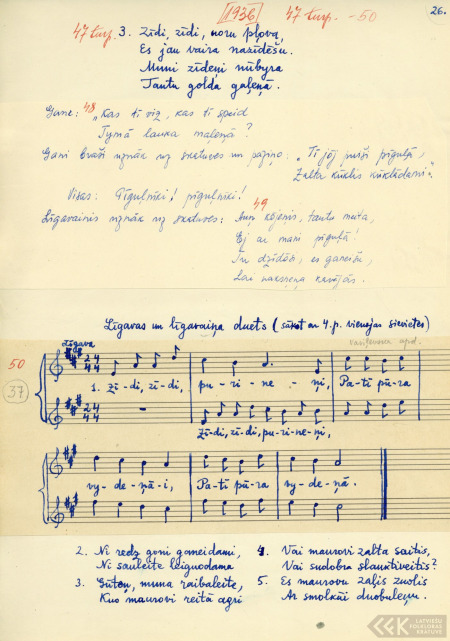 1936 47 turp. - 50 26.
47 turp. 3. Zīdi, zīdi, noru pļova,
Es jau vaira nazīdēšu.
Muni zīdeni nūbyra
Tautu golda gaļeņā.
48
Gane: "Kas tī viz, kas tī speid
Tymā lauka maļeņā?
Gani uznāk uz skatuves un paziņo: "Tī jōj puiši pīguļā,
Zalta kūklis kūklādami".
Visas: Pīguļnīki! pīguļnīki!
49
Līgavainis uznāk uz skatuves: Aun kōjeņis, tautu meita,
Ej ar mani pīguļā!
Tu dzīdōsi, es ganeišu,
Lai
Līgavas un līgavaiņa duets (sākot ar 4. p. vienojas sievietes)
Līgava
50
37
1. Zī-di, zī-di, pu-ri-ne-ņi, Pa-ti pū-ra
Zī-di, zī-di, pu-ri-ne-ņi,
vy-de-ņā-i, Pa-ti pū-ra vy-de-ņā.
2. Ni redz goni gomeidami,
Ni sauleite leiguodama
3. Gūteņ, muna raibaleite,
Kuo maurovi reitā agri
4. Vai maurovi zalta saitis,
Vai sudobra slauktiveitis?
5. Es maurovu zaļis zuolis
Ar smolkūi duobuleņu.
LFK
LATVIEŠU
FOLKLORAS
KRĀTUVE